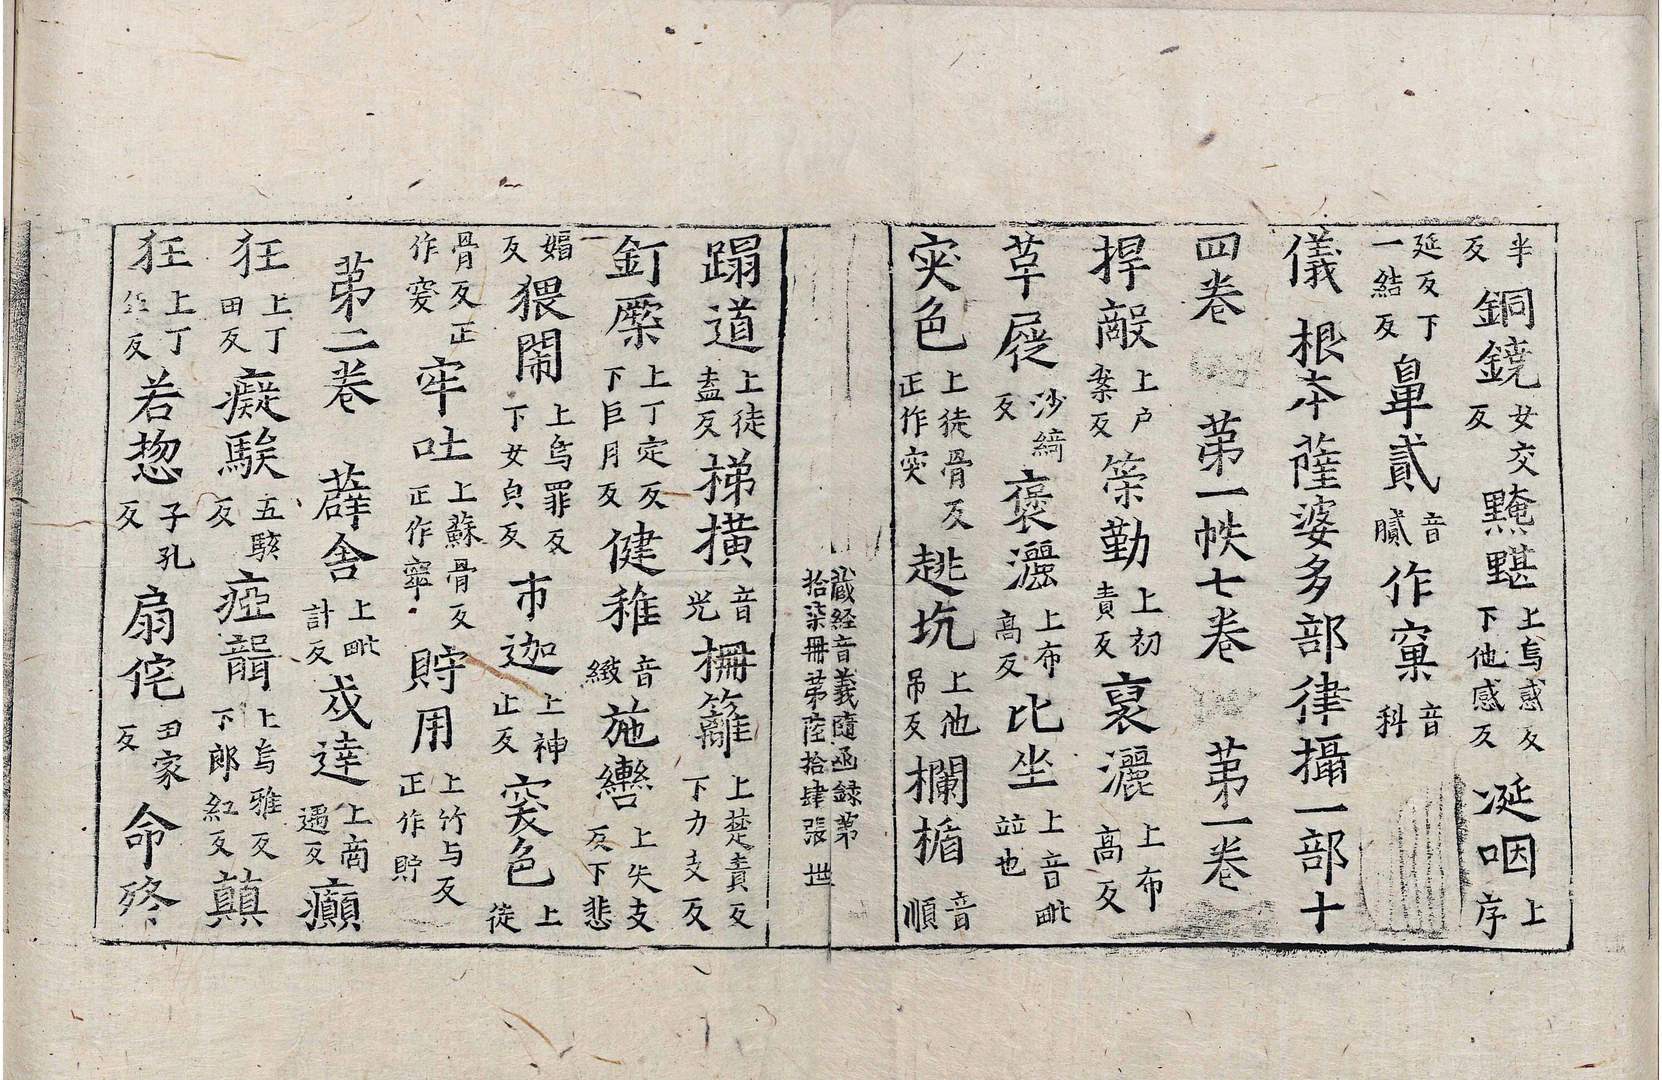 半反銅鐃女交反黤黮上烏感反下他感反涎咽上序
延反下一結反鼻貳音膩作窠音科
儀 根本薩婆多部律攝一部十
四卷 第一帙七卷 第一卷
捍敵上戶案反策勤上初責反裹灑上布高反
草屣沙綺反褒灑上布高反比坐上音毗竝也
突色上徒骨反正作突趒坑上他吊反欄楯音順
藏経音義隨函録第
拾柒冊第陸拾肆張 世
蹋道上徒盍反梯橫音光柵籬上楚責反下力支反
釘橜上丁定反下巨月反健稚音緻施轡上失支反下悲
媚反猥閙上烏罪反下女皃反市迦上神止反突色上徒
骨反正作窔牢吐上蘇骨反正作窣貯用上竹与反正作貯
第二卷 薜舍上毗計反戍達上商遇反癲
狂上丁田反癡騃五駭反瘂聾上烏雅反下郎紅反顛
狂上丁反若惣子孔反扇侘田家反命終